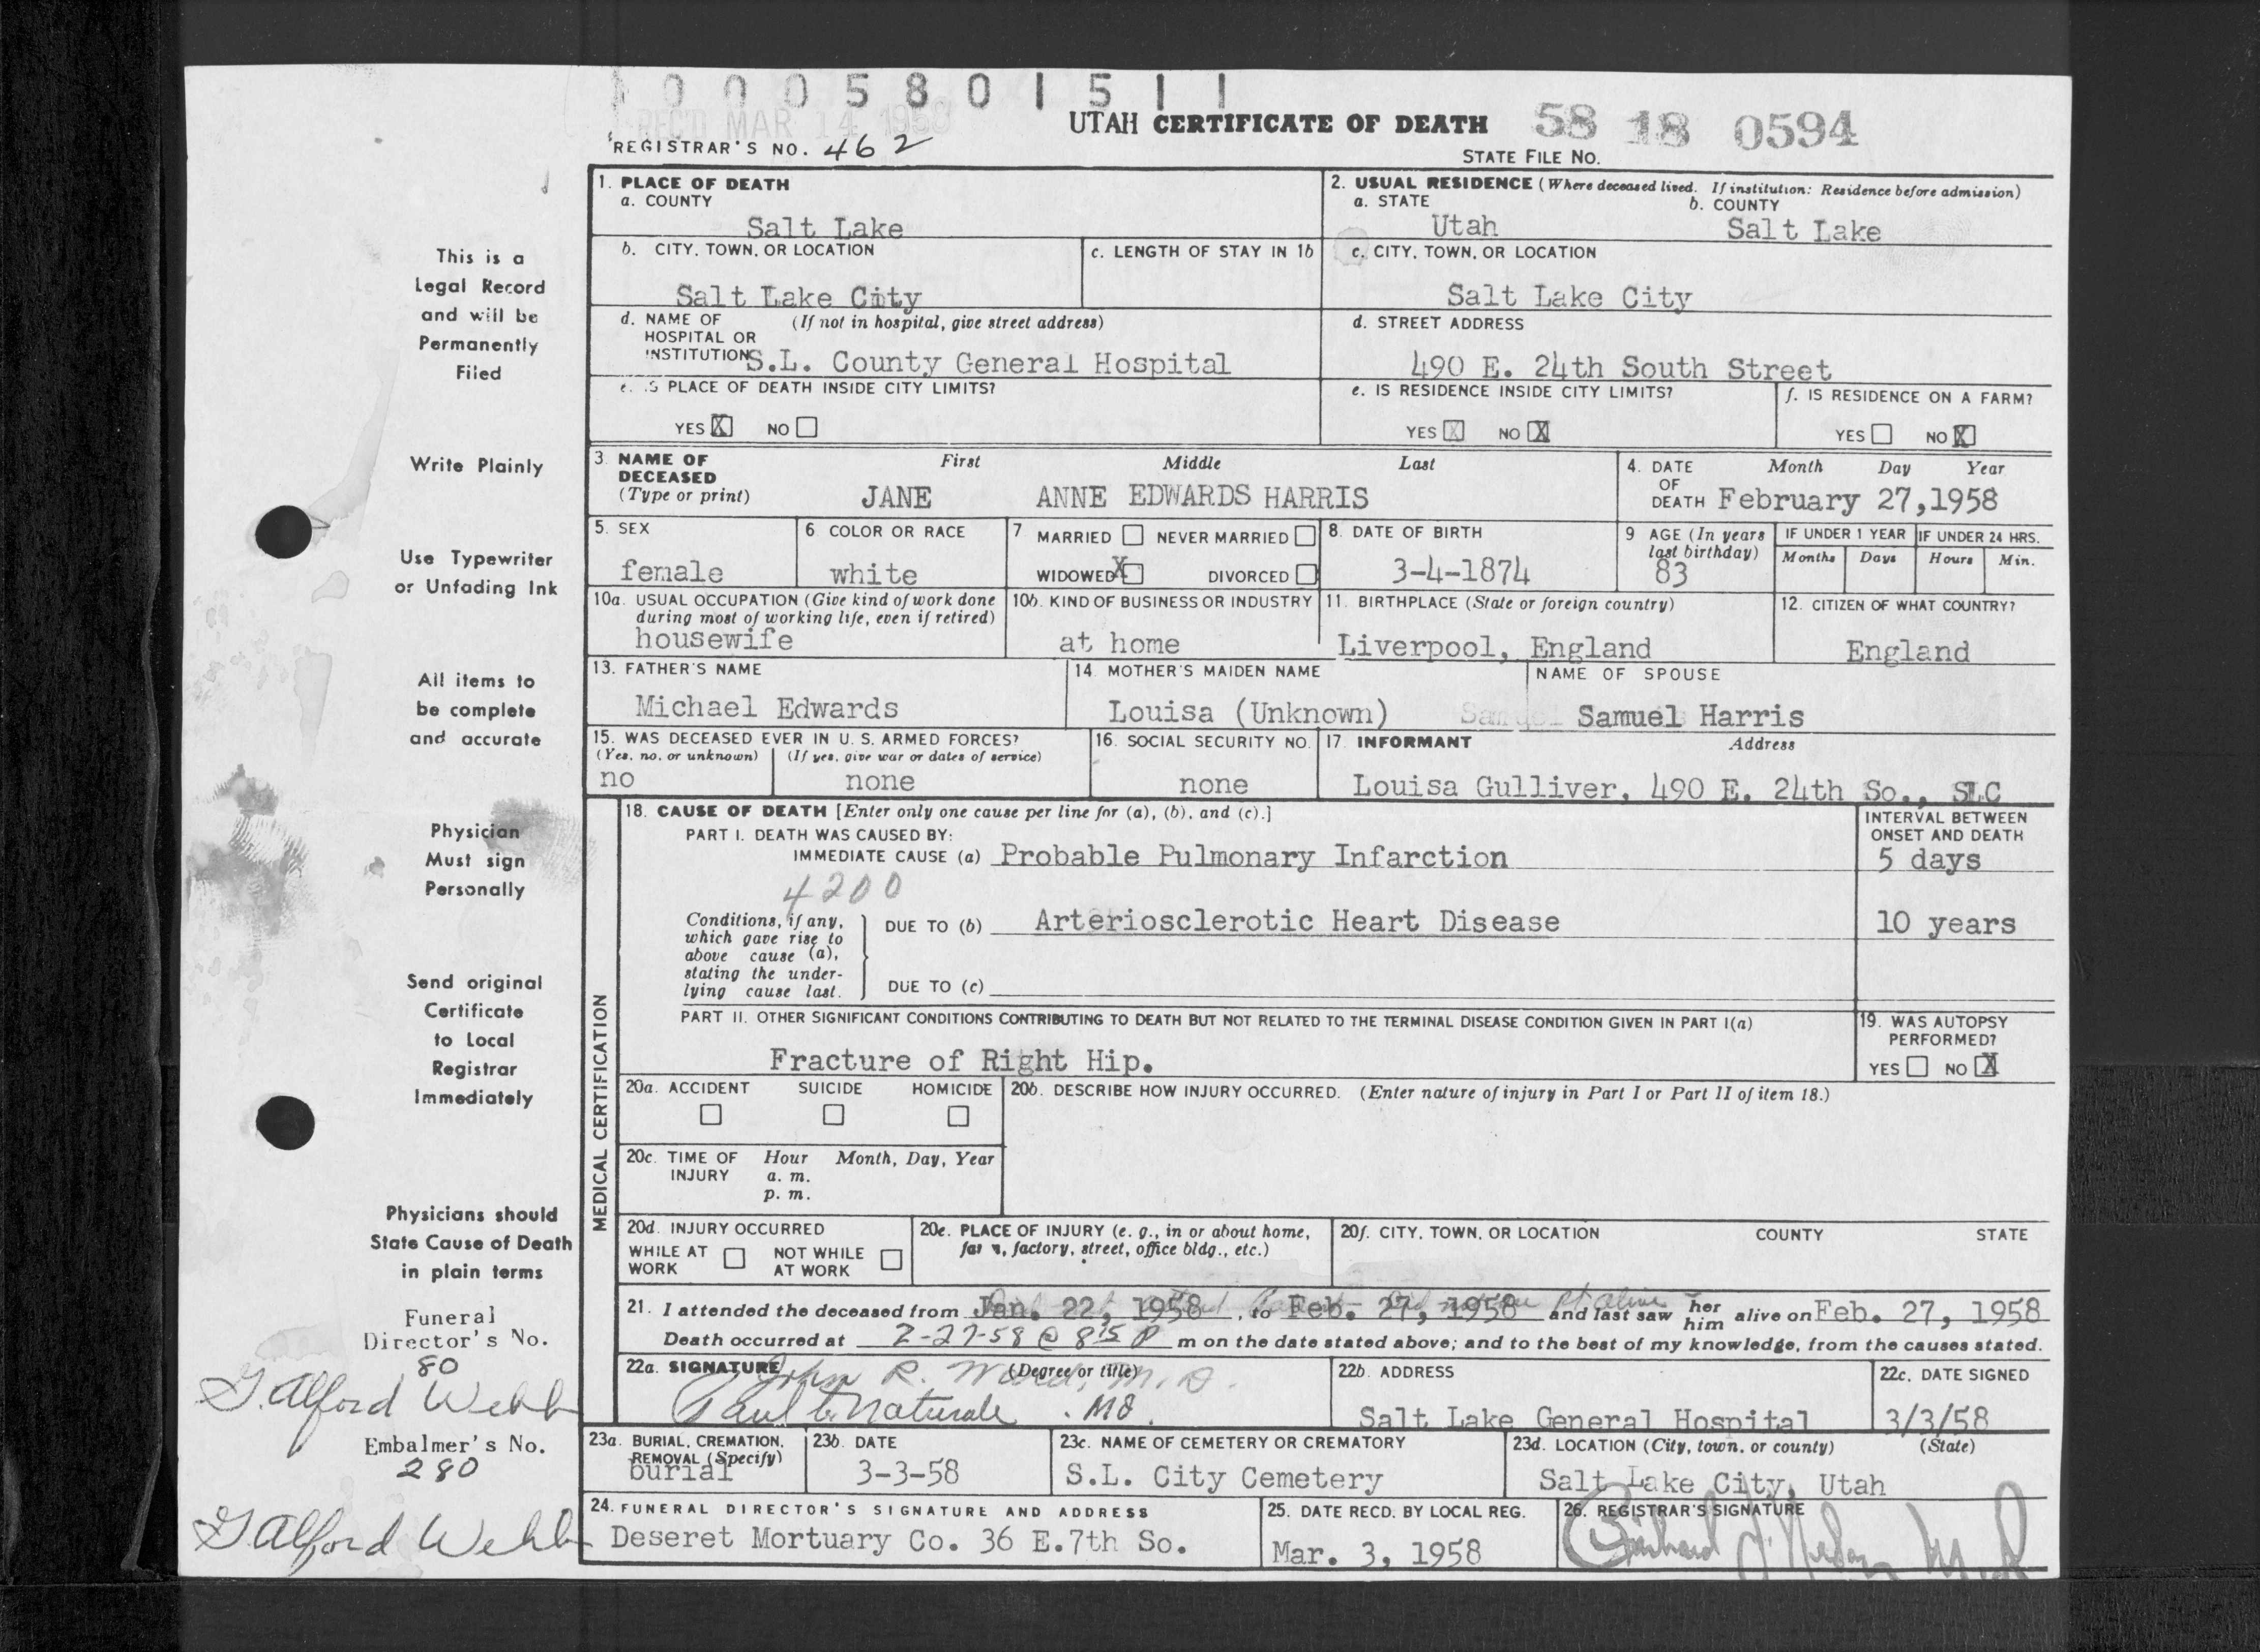 0 0 0 5 8 0 1 5 1 1
REC'D MAR 14 1958
UTAH CERTIFICATE OF DEATH 58 18 0594
REGISTRAR'S NO. 462
STATE FILE NO.
This is a
Legal Record
and will be
Permanently
Filed
Write Plainly
Use Typewriter
or Unfading Ink
All items to
be complete
and accurate
Physician
Must sign
Personally
Send original
Certificate
to Local
Registrar
Immediately
Physicians should
State Cause of Death
in plain terms
Funeral
Director's No.
80
G. Alford Webb
Embalmer's No.
280
G Alford Webb
1. PLACE OF DEATH
a. COUNTY
Salt Lake
2. USUAL RESIDENCE (Where deceased lived. If institution: Residence before admission)
a. STATE b. COUNTY
Utah Salt Lake
b. CITY, TOWN, OR LOCATION c. LENGTH OF STAY IN 1b
Salt Lake City
c. CITY, TOWN, OR LOCATION
Salt Lake City
d. NAME OF (If not in hospital, give street address)
HOSPITAL OR
INSTITUTION S.L. County General Hospital
d. STREET ADDRESS
490 E. 24th South Street
e. IS PLACE OF DEATH INSIDE CITY LIMITS?
YES X NO
e. IS RESIDENCE INSIDE CITY LIMITS?
YES X NO X
f. IS RESIDENCE ON A FARM?
YES NO X
3. NAME OF First Middle Last
DECEASED
(Type or print) JANE ANNE EDWARDS HARRIS
4. DATE Month Day Year
OF
DEATH February 27,1958
5. SEX
female
6 COLOR OR RACE
white
7 MARRIED NEVER MARRIED
WIDOWED X DIVORCED
8. DATE OF BIRTH
3-4-1874
9 AGE (In years
last birthday)
83
IF UNDER 1 YEAR IF UNDER 24 HRS.
Months Days Hours Min.
10a. USUAL OCCUPATION (Give kind of work done
during most of working life, even if retired)
housewife
10b. KIND OF BUSINESS OR INDUSTRY
at home
11. BIRTHPLACE (State or foreign country)
Liverpool, England
12. CITIZEN OF WHAT COUNTRY?
England
13. FATHER'S NAME
Michael Edwards
14. MOTHER'S MAIDEN NAME
Louisa (Unknown)
NAME OF SPOUSE
Samuel Samuel Harris
15. WAS DECEASED EVER IN U. S. ARMED FORCES?
(Yes, no, or unknown) (If yes, give war or dates of service)
no none
16. SOCIAL SECURITY NO.
none
17. INFORMANT Address
Louisa Gulliver, 490 E. 24th So., SLC
MEDICAL CERTIFICATION
18. CAUSE OF DEATH [Enter only one cause per line for (a), (b), and (c).]
PART I. DEATH WAS CAUSED BY:
IMMEDIATE CAUSE (a) Probable Pulmonary Infarction
INTERVAL BETWEEN
ONSET AND DEATH
5 days
4200
Conditions, if any,
which gave rise to
above cause (a),
stating the under-
lying cause last.
DUE TO (b) Arteriosclerotic Heart Disease 10 years
DUE TO (c)
PART II. OTHER SIGNIFICANT CONDITIONS CONTRIBUTING TO DEATH BUT NOT RELATED TO THE TERMINAL DISEASE CONDITION GIVEN IN PART I(a)
Fracture of Right Hip.
19. WAS AUTOPSY
PERFORMED?
YES NO X
20a. ACCIDENT SUICIDE HOMICIDE
20b. DESCRIBE HOW INJURY OCCURRED. (Enter nature of injury in Part I or Part II of item 18.)
20c. TIME OF Hour Month, Day, Year
INJURY a. m.
p. m.
20d. INJURY OCCURRED
WHILE AT NOT WHILE
WORK AT WORK
20e. PLACE OF INJURY (e. g., in or about home,
farm, factory, street, office bldg., etc.)
20f. CITY, TOWN, OR LOCATION COUNTY STATE
21. I attended the deceased from Jan. 22, 1958, to Feb. 27, 1958 and last saw her him alive on Feb. 27, 1958
Death occurred at 2-27-58 @ 8 15 P m on the date stated above; and to the best of my knowledge, from the causes stated.
22a. SIGNATURE (Degree or title)
John R. Ward, M.D.
Paul G. Naturale . MD.
22b. ADDRESS
Salt Lake General Hospital
22c. DATE SIGNED
3/3/58
23a. BURIAL, CREMATION,
REMOVAL (Specify)
burial
23b. DATE
3-3-58
23c. NAME OF CEMETERY OR CREMATORY
S.L. City Cemetery
23d. LOCATION (City, town, or county) (State)
Salt Lake City, Utah
24. FUNERAL DIRECTOR'S SIGNATURE AND ADDRESS
Deseret Mortuary Co. 36 E.7th So.
25. DATE RECD. BY LOCAL REG.
Mar. 3, 1958
26. REGISTRAR'S SIGNATURE